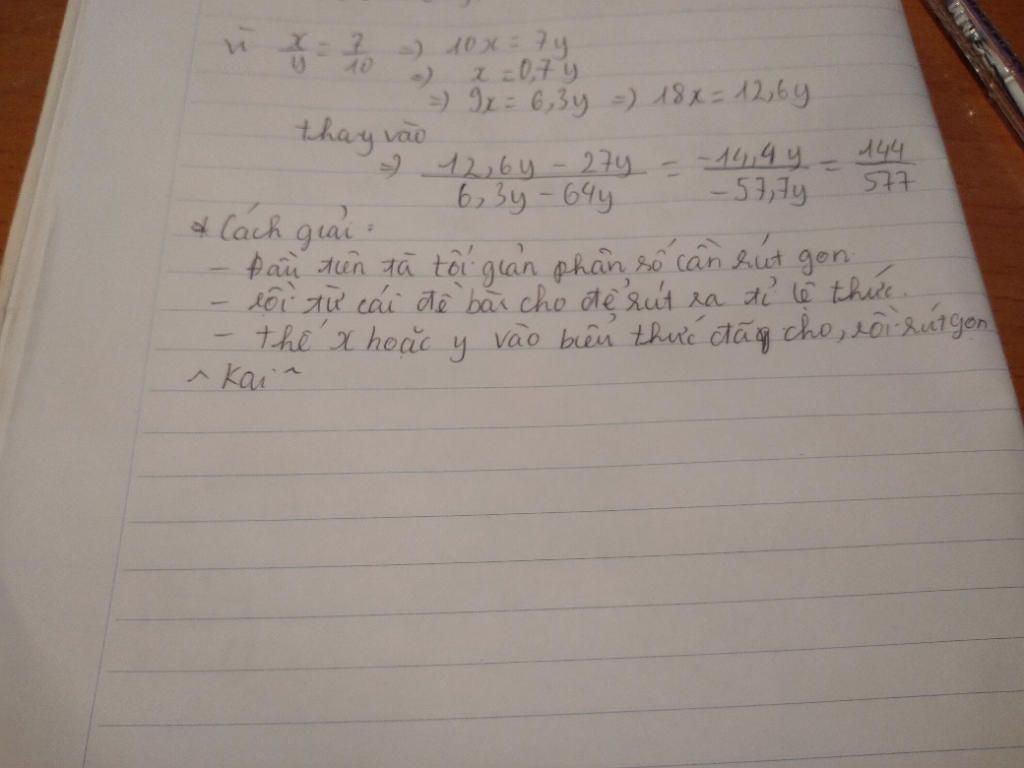 vì x/y = 7/10 => 10x = 7y
=> x = 0,7y
=> 9x = 6,3y => 18x = 12,6y
thay vào
=> (12,6y - 27y)/(6,3y - 64y) = (-14,4y)/(-57,7y) = 144/577
* Cách giải:
- Đầu tiên ta tối giản phân số cần rút gọn.
- rồi từ cái đề bài cho để rút ra tỉ lệ thức.
- thế x hoặc y vào biểu thức đã cho, rồi rút gọn
^ Kai ~